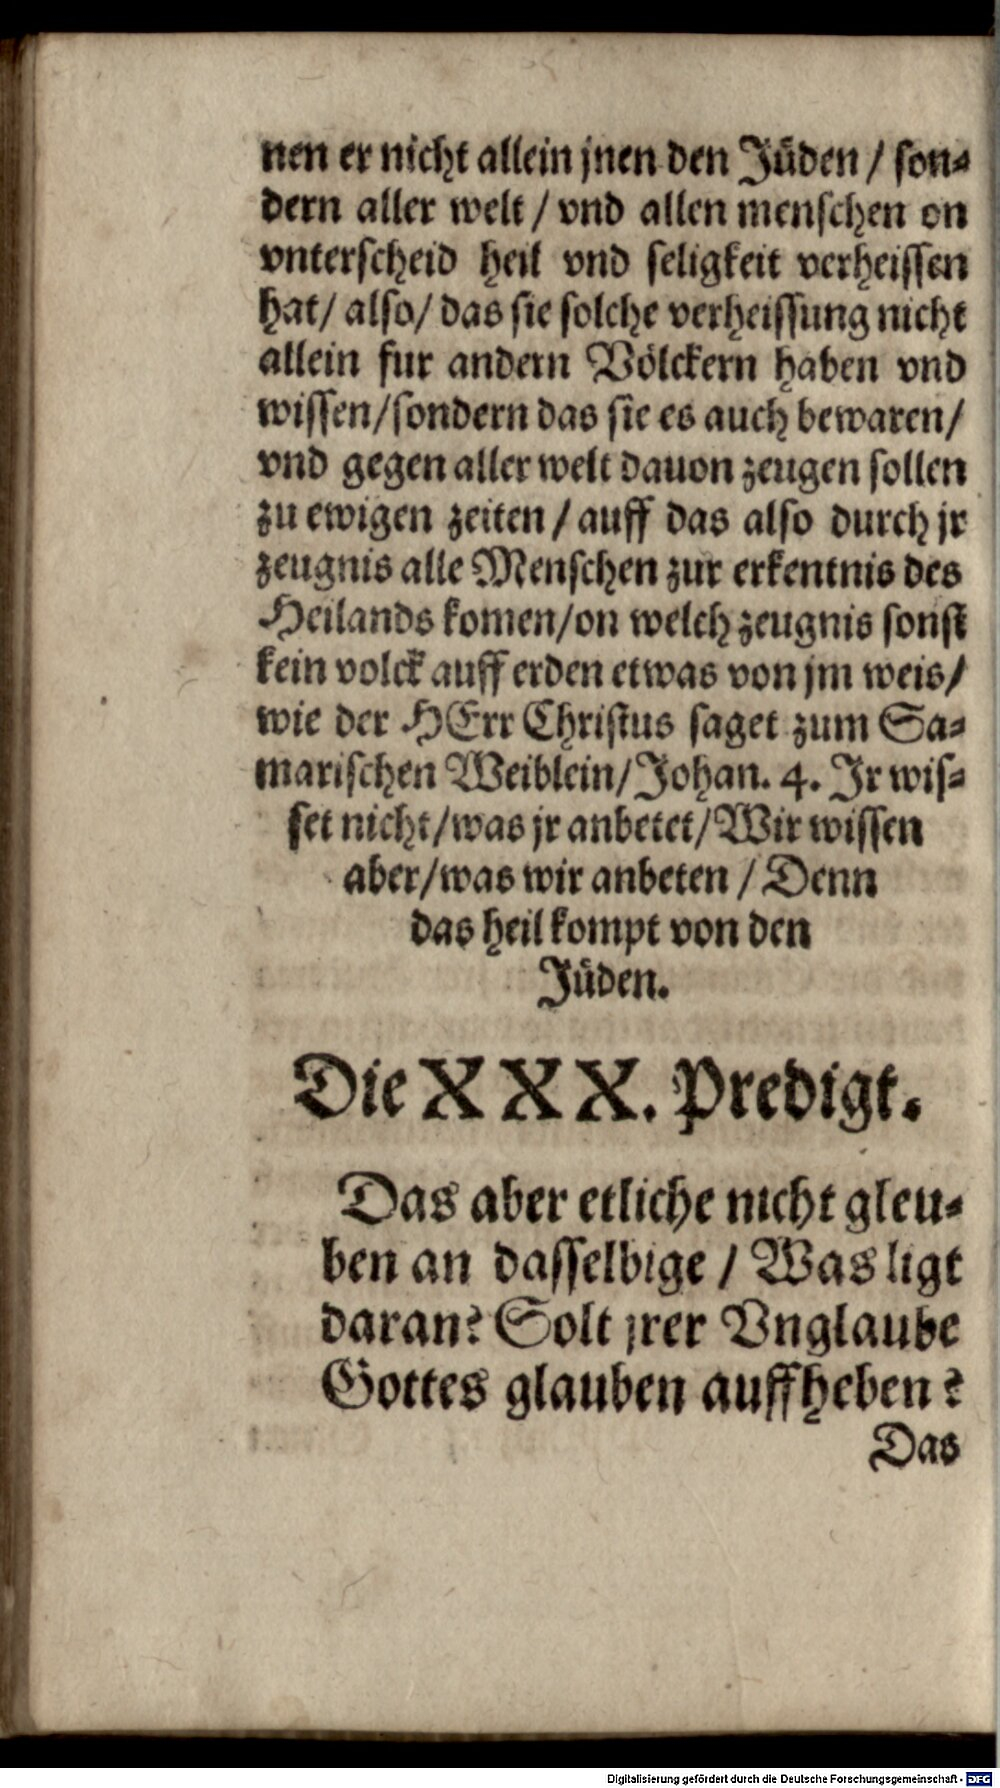 nen er nicht allein jnen den Jüden / son-
dern aller welt / vnd allen menschen on
vnterscheid heil vnd seligkeit verheissen
hat / also / das sie solche verheissung nicht
allein fur andern Völckern haben vnd
wissen / sondern das sie es auch bewaren /
vnd gegen aller welt dauon zeugen sollen
zu ewigen zeiten / auff das also durch jr
zeugnis alle Menschen zur erkentnis des
Heilands komen / on welch zeugnis sonst
kein volck auff erden etwas von jm weis /
wie der HErr Christus saget zum Sa-
marischen Weiblein / Johan. 4. Jr wis-
set nicht / was jr anbetet / Wir wissen
aber / was wir anbeten / Denn
das heil kompt von den
Jüden.
Die XXX. Predigt.
Das aber etliche nicht gleu-
ben an dasselbige / Was ligt
daran? Solt jrer Vnglaube
Gottes glauben auffheben?
Das
Digitalisierung gefördert durch die Deutsche Forschungsgemeinschaft - DFG